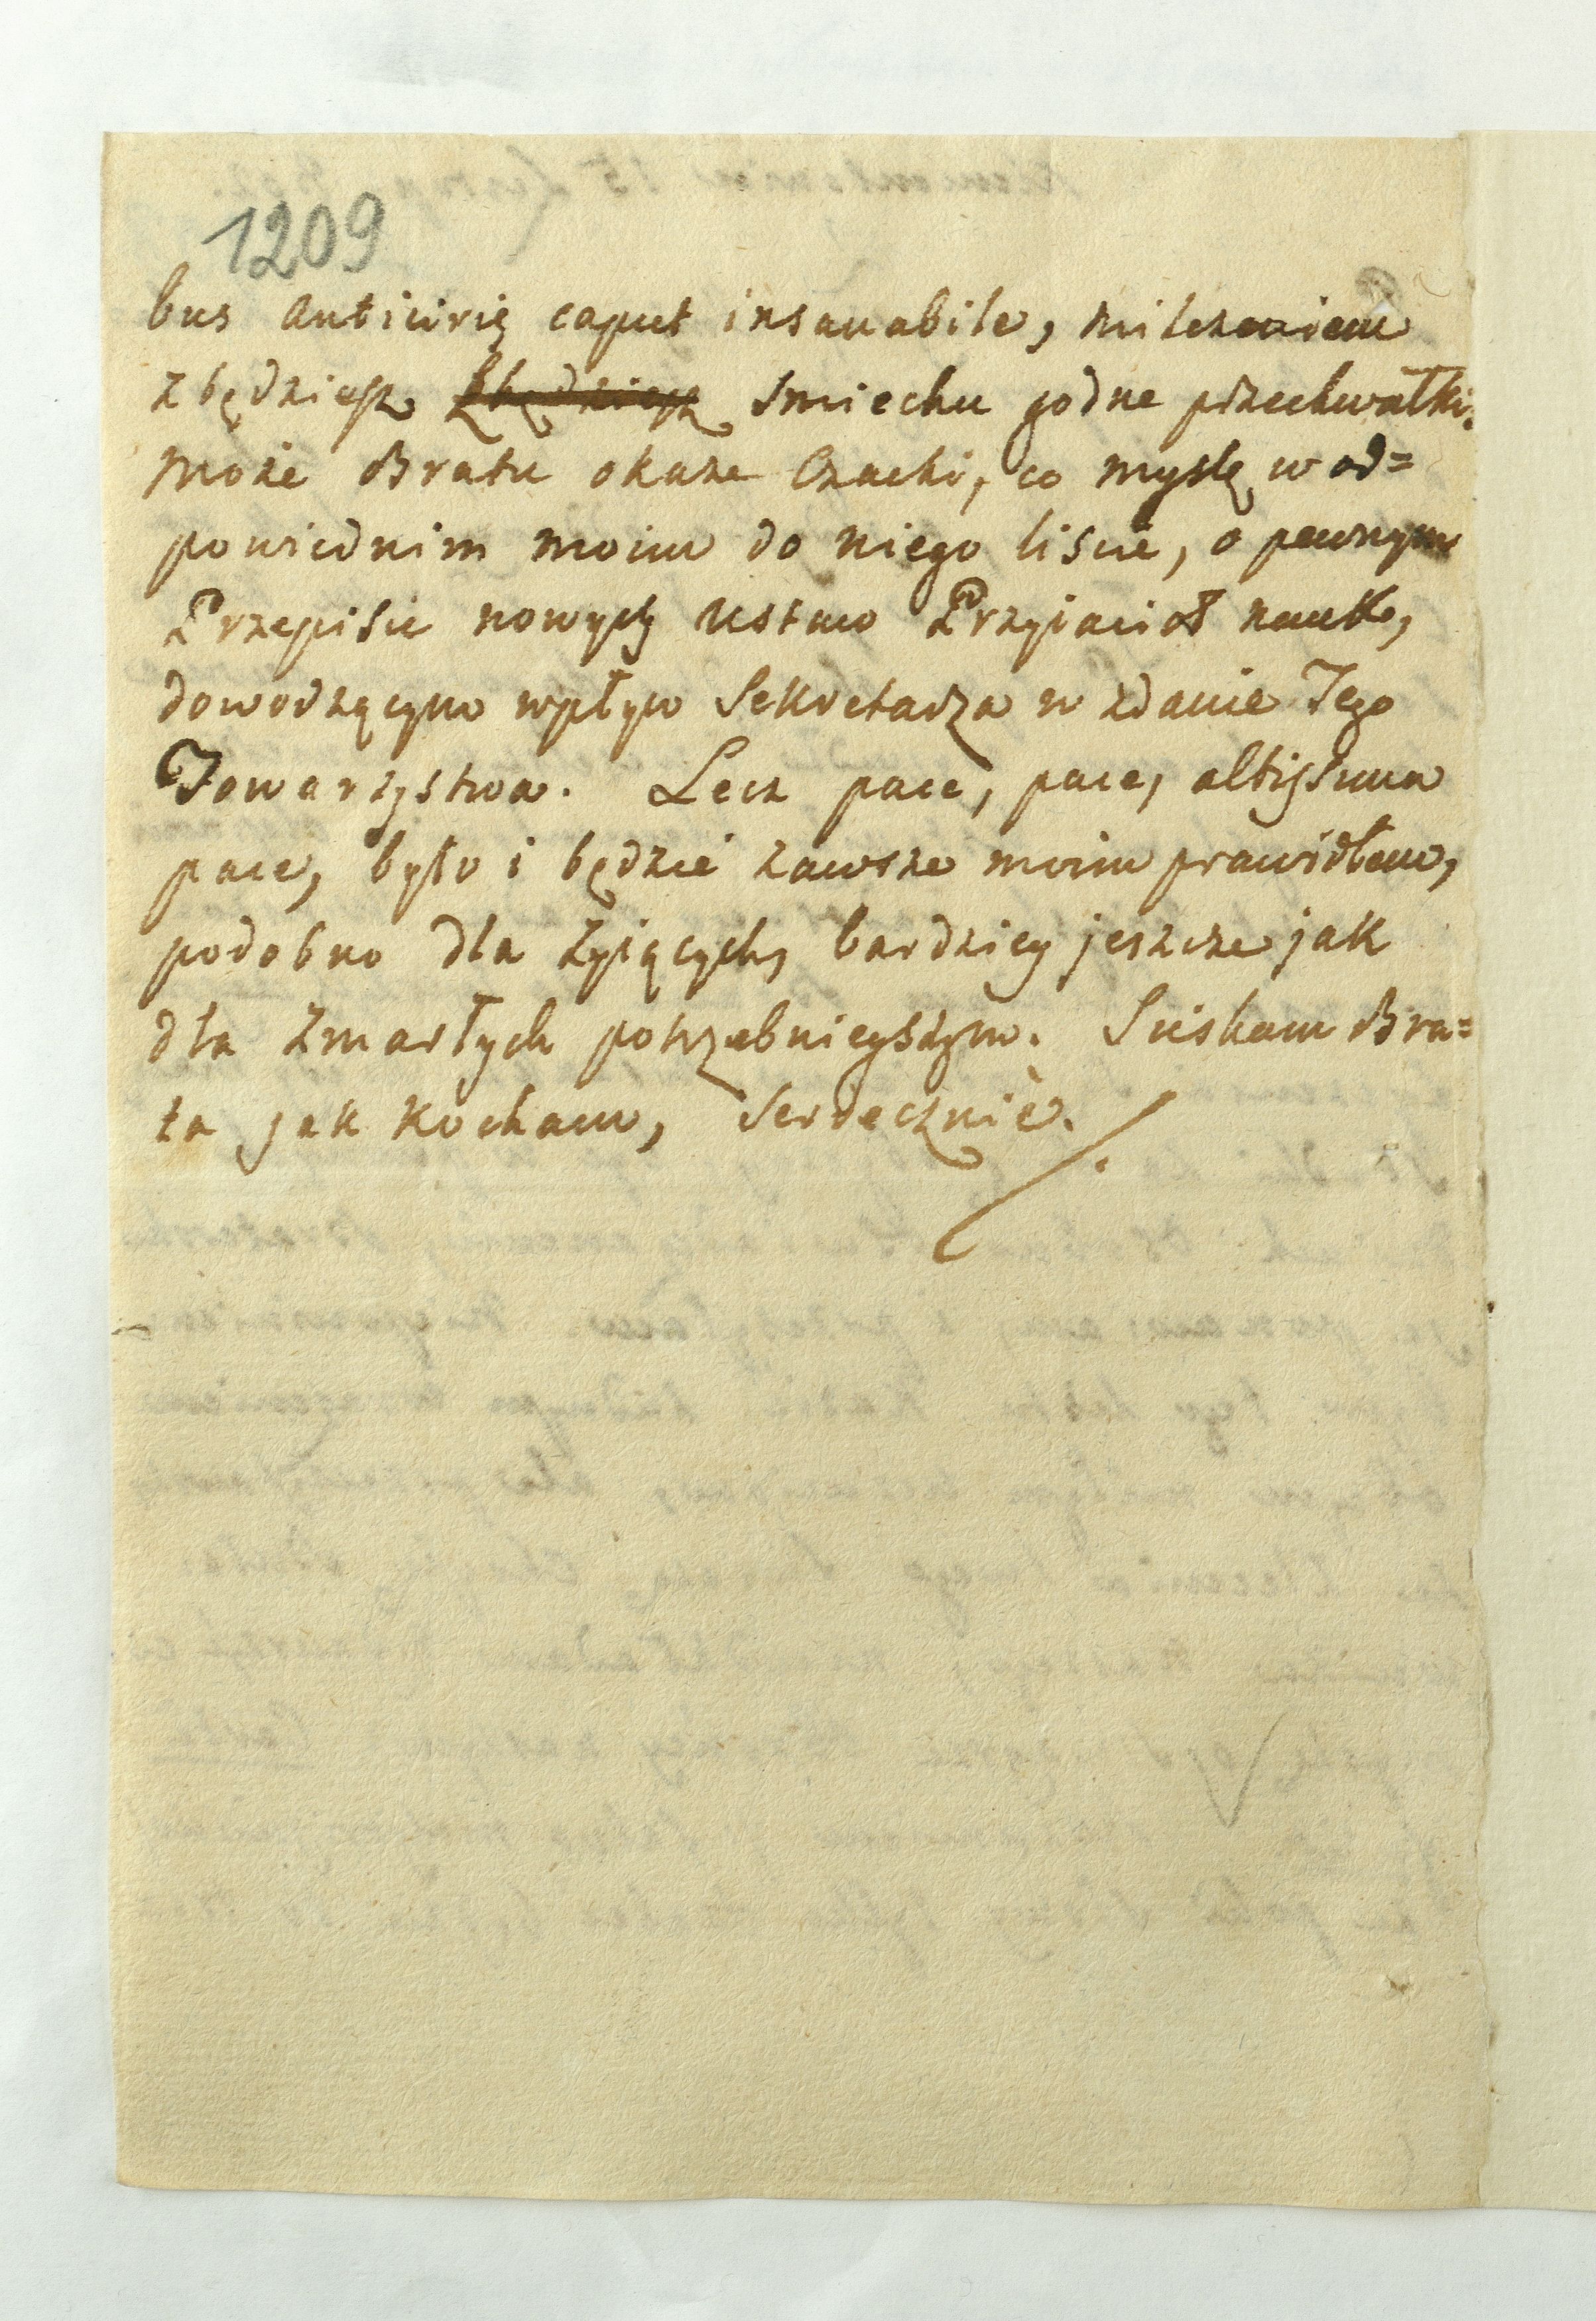 1209
bus anticiris caput insanabile, milczeniem
zbędziesz zbędziesz smiechu godne przechwałki.
może Bratu okaże Czacki, co myslę w od=
powiednim moim do niego liscie, o pewnym
Przepisie nowych ustaw Przyiaciół nauk,
dowodzącym wpływ Sekretarza w zdanie Tego
Towarzystwa. Lecz pace, pace, altissima
pace, było i będzie zawsze moim prawidłem,
podobno dla żyiących, bardziey jeszcze jak
dla zmarłych potrzebnieyszym. Sciskam Bra=
ta jak kocham, serdecznie.